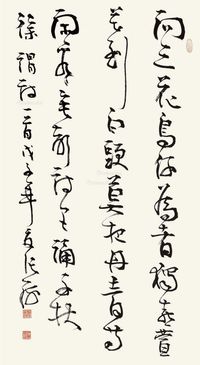 問之花鳥何為者獨喜萱
花到白頭莫把丹青等
閒看無聲詩里誦千秋
徐渭詩一首戊子年